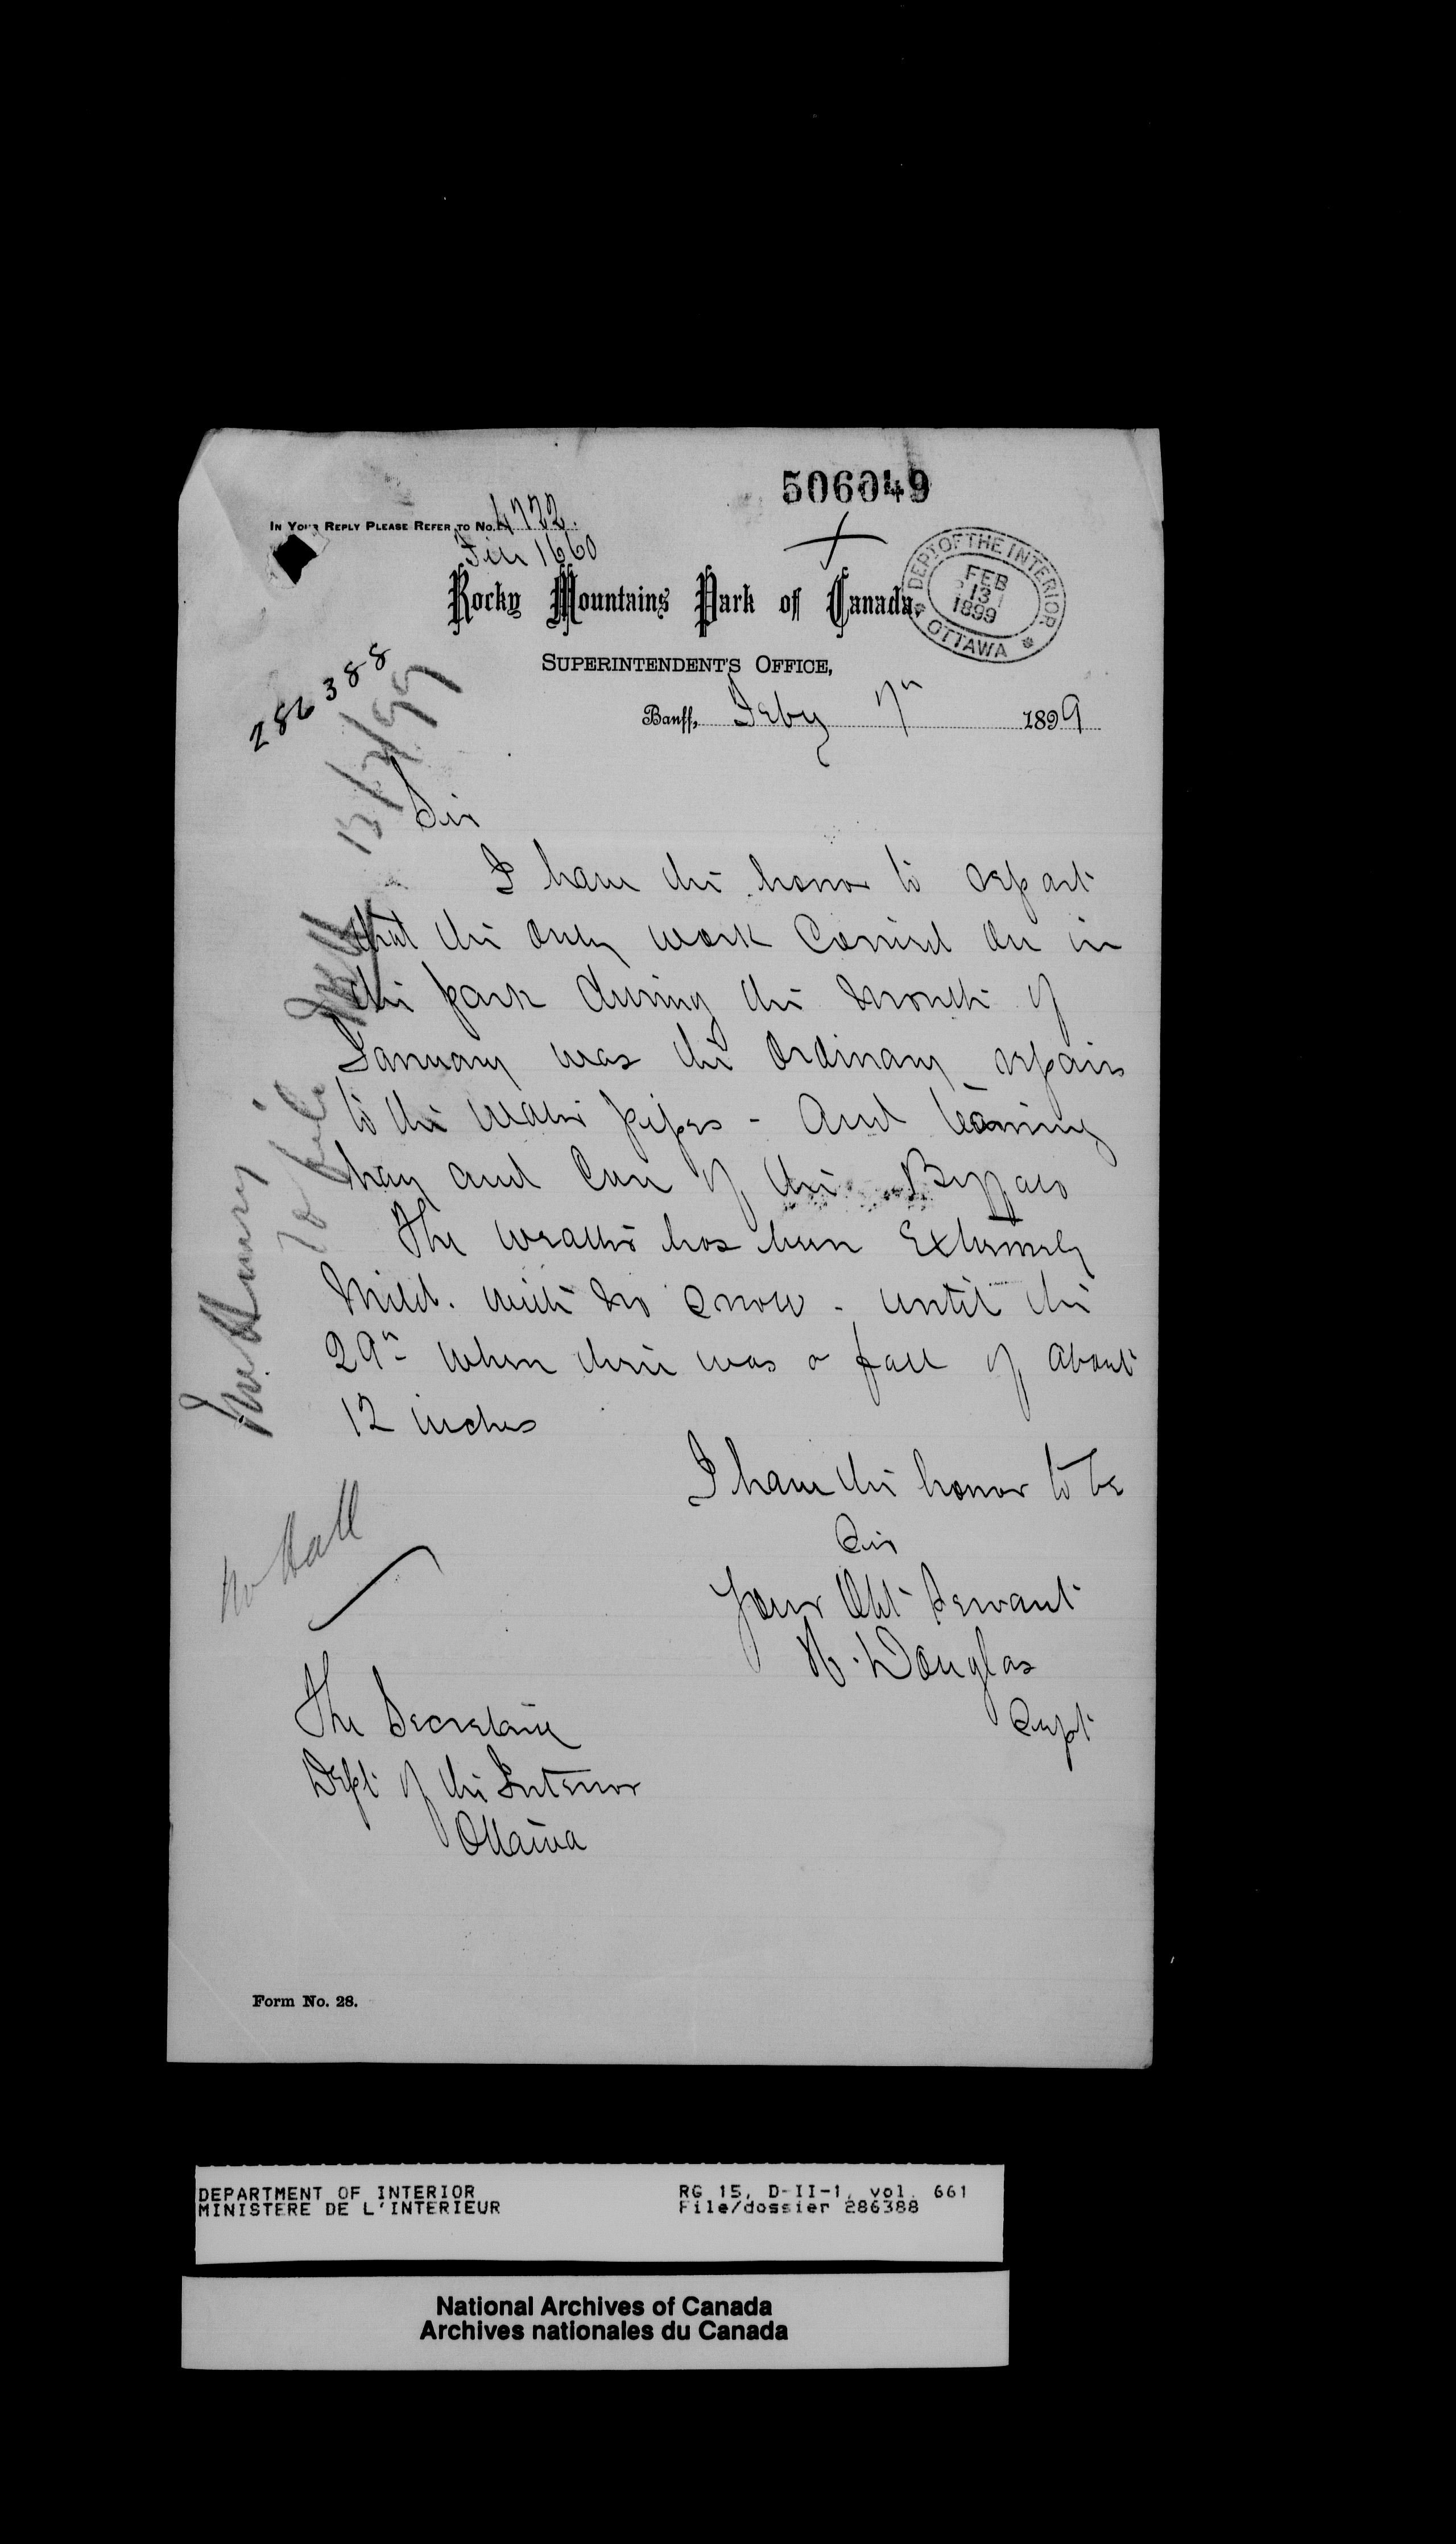 506049
IN YOUR REPLY PLEASE REFER TO No. 4722.
File 1660
DEPT OF THE INTERIOR
FEB
13
1899
OTTAWA
Rocky Mountains Park of Canada.
SUPERINTENDENT'S OFFICE,
Banff, Feby 7th 1899
286388
13/2/99
Sir
I have the honor to report
that the only work carried on in
the park during the month of
January was the ordinary repairs
to the water pipes - and teaming
hay and care of the Buffalo
The weather has been Extremely
mild. with no snow - until the
29th when there was a fall of about
12 inches
I have the honor to be
Sir
Your Obt Servant
H. Douglas
Supt
To file
Mr Hall
The Secretary
Dept of the Interior
Ottawa
Form No. 28.
DEPARTMENT OF INTERIOR RG 15, D-II-1, vol. 661
MINISTERE DE L'INTERIEUR File/dossier 286388
National Archives of Canada
Archives nationales du Canada